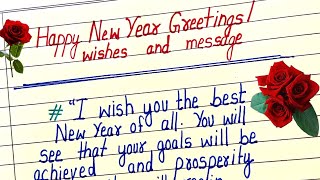 Happy New Year Greetings/
wishes and message
# "I wish you the best
New Year of all. You will
see that your goals will be
achieved and prosperity